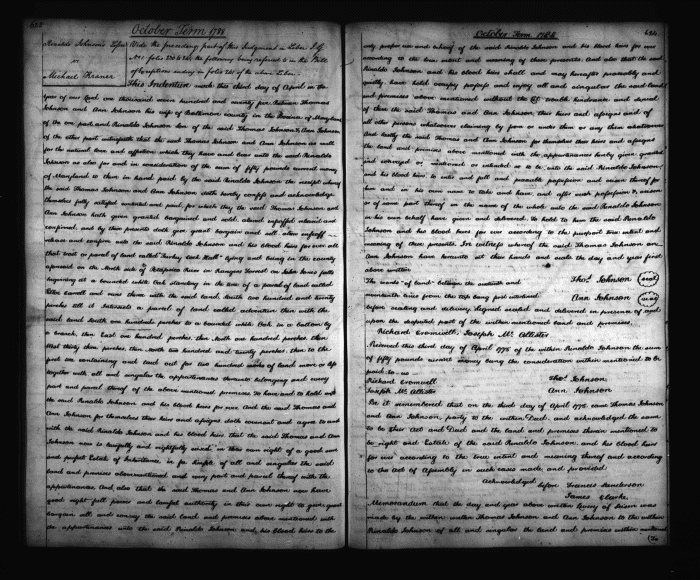 623
October Term 1788
Rinaldo Johnson's Lessee
vs
Michael Kraner
Vide the preceding part of this Judgment in Liber J G
No 1 folio 240 & 241, the following being referred to in the Bill
of Exceptions ending in folio 241 of the above Liber
This Indenture made this third day of April in the
year of our Lord one thousand seven hundred and seventy five Between Thomas
Johnson and Ann Johnson his wife of Baltimore county in the Province of Maryland
of the one part and Rinaldo Johnson son of the said Thomas Johnson & Ann Johnson
of the other part witnesseth that the said Thomas Johnson and Ann Johnson as well
for the natural love and affection which they have and bear unto the said Rinaldo
Johnson as also for and in consideration of the sum of fifty pounds current money
of Maryland to them in hand paid by the said Rinaldo Johnson the receipt whereof
the said Thomas Johnson and Ann Johnson doth hereby confess and acknowledge
themselves fully satisfied contented and paid, for which they the said Thomas Johnson and
Ann Johnson hath given granted bargained and sold, aliened enfeoffed released and
confirmed, and by these presents doth give grant bargain and sell alien enfeoff
release and confirm unto the said Rinaldo Johnson and his blood heirs for ever all
that tract or parcel of land called Turkey Cock Hall lying and being in the county
aforesaid on the North side of Patapsco River in
beginning at a bounded white Oak standing in the line of a parcel of land called
and runs thence with the said land, North two hundred and twenty
perches till it intersects a parcel of land called adventure then with the
said land North one hundred perches to a bounded white Oak in a bottom by
a branch, then East one hundred perches, then North one hundred perches then
then to the
first containing and laid out for two hundred acres of land more or less
together with all and singular the appurtenances thereunto belonging and every
part and parcel thereof of the above mentioned premises To have and to hold unto
the said Rinaldo Johnson and his blood heirs for ever And the said Thomas and
Ann Johnson for themselves their heirs and assigns doth covenant and agree to and
with the said Rinaldo Johnson and his blood heirs that the said Thomas and Ann
Johnson now is lawfully and rightfully seized in their own right of a good sure
and perfect Estate of Inheritance in fee simple of all and singular the said
land and premises abovementioned and every part and parcel thereof with the
appurtenances And also that the said Thomas and Ann Johnson now have
good right full power and lawful authority in their own right to give grant
bargain sell and convey the said land and premises above mentioned with
the appurtenances unto the said Rinaldo Johnson and his blood heirs to the
October Term 1788
624
only proper use and behoof of the said Rinaldo Johnson and his blood heirs for ever
according to the true intent and meaning of these presents. And also that the said
Rinaldo Johnson and his blood heirs shall and may hereafter peaceably and
quietly have hold occupy possess and enjoy all and singular the said land
and premises above mentioned without the let trouble hindrance and denial
of them the said Thomas and Ann Johnson their heirs and assigns and of
all other persons whatsoever claiming by from or under them or any them whatsoever
And lastly the said Thomas and Ann Johnson for themselves their heirs and assigns
the land and premises above mentioned with the appurtenances hereby given granted
and conveyed or mentioned or intended so to be, unto the said Rinaldo Johnson
and his blood heirs to into and full and peaceable possession and seizin thereof for
him and in his own name to take and have and after such possession & seizin
or of some part thereof in the name of the whole unto the said Rinaldo Johnson
in his own behalf have given and delivered. To hold to him the said Rinaldo
Johnson and his blood heirs for ever according to the purport true intent and
meaning of these presents. In witness whereof the said Thomas Johnson an
Ann Johnson have hereunto set their hands and seals the day and year first
above written
The words "of land" between the sixteenth and
seventeenth lines from the top being first interlined
Thos. Johnson (seal)
Ann Johnson (seal)
before sealing and delivery. Signed sealed and delivered in presence of and
upon the part of the within mentioned land and premises.
Richard Cromwell, Joseph McAllister
Received this third day of April 1775 of the within Rinaldo Johnson the sum
of fifty pounds current money being the consideration within mentioned to be
paid to us
Richard Cromwell
Joseph McAllister
Thos. Johnson
Ann Johnson
Be it remembered that on the third day of April 1775 came Thomas Johnson
and Ann Johnson, party to the within Deed, and acknowledged the same
to be their Act and Deed and the land and premises therein mentioned to
be right and Estate of the said Rinaldo Johnson and his blood heirs
for ever according to the true intent and meaning thereof and according
to the Act of Assembly in such cases made and provided
Acknowledged
before Frances Sanderson
James Clarke.
Memorandum that the day and year above written Livery of Seizin was
made by the within written Thomas Johnson and Ann Johnson to the within
Rinaldo Johnson of all and singular the land and premises within mentioned